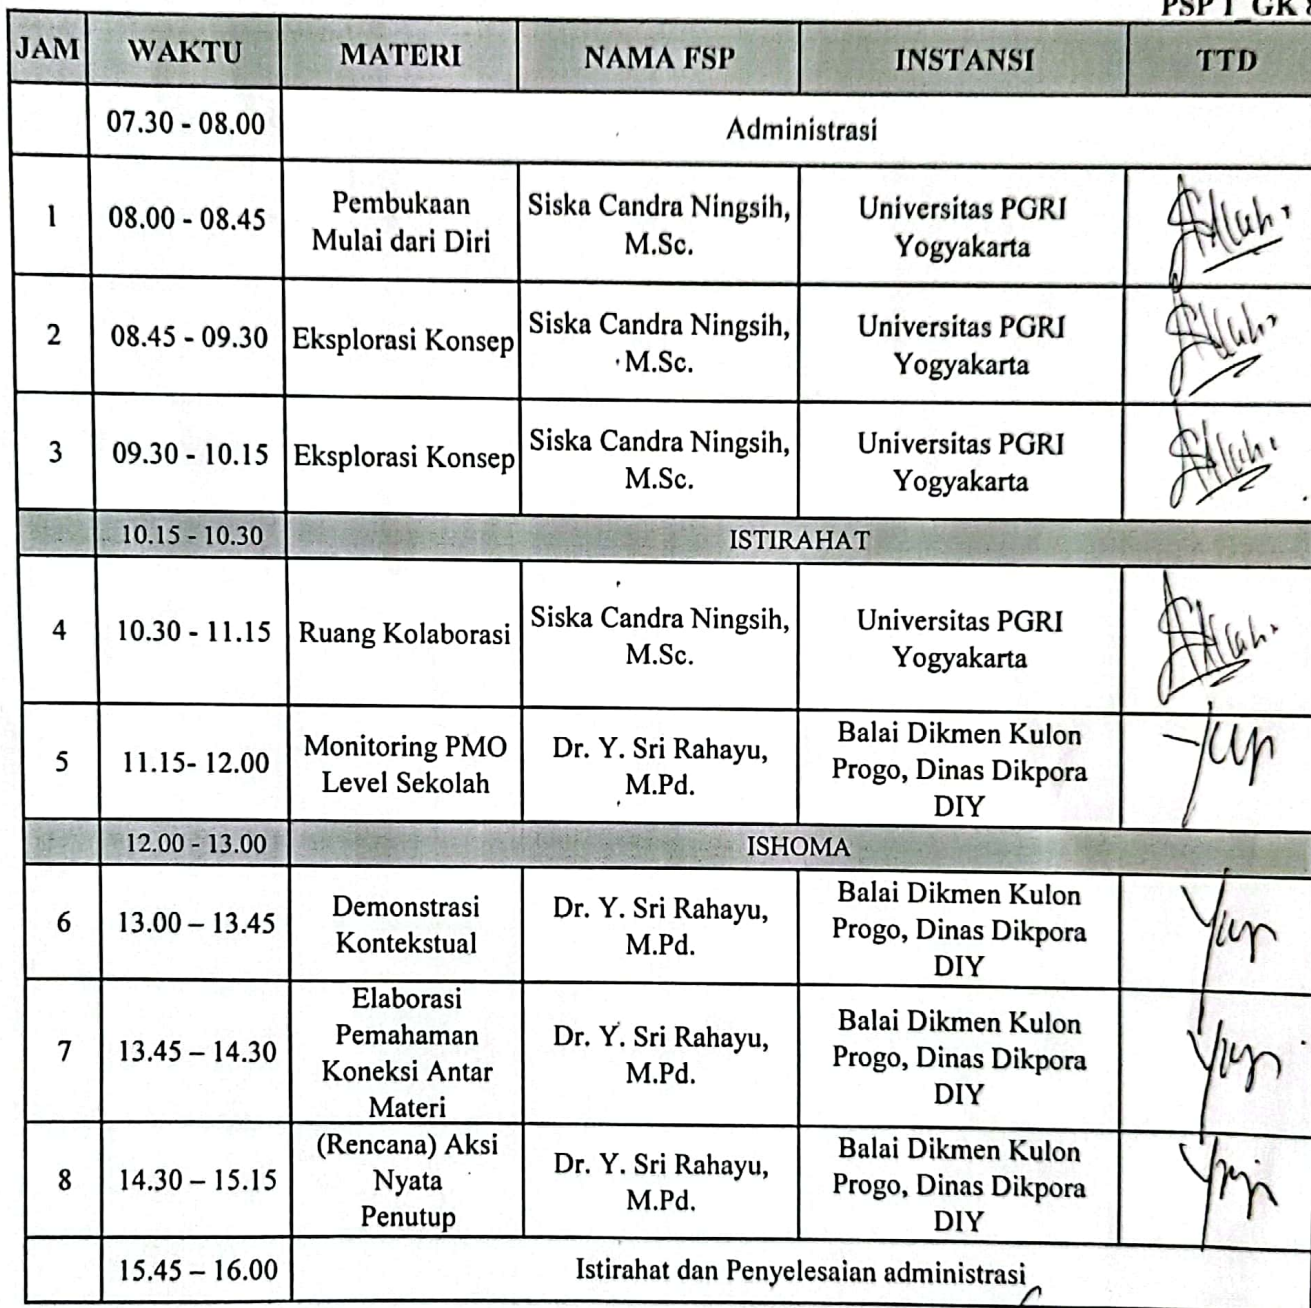 PSP 1_GK 8
JAM WAKTU MATERI NAMA FSP INSTANSI TTD
07.30 - 08.00 Administrasi
1 08.00 - 08.45 Pembukaan
Mulai dari Diri Siska Candra Ningsih,
M.Sc. Universitas PGRI
Yogyakarta
2 08.45 - 09.30 Eksplorasi Konsep Siska Candra Ningsih,
M.Sc. Universitas PGRI
Yogyakarta
3 09.30 - 10.15 Eksplorasi Konsep Siska Candra Ningsih,
M.Sc. Universitas PGRI
Yogyakarta
10.15 - 10.30 ISTIRAHAT
4 10.30 - 11.15 Ruang Kolaborasi Siska Candra Ningsih,
M.Sc. Universitas PGRI
Yogyakarta
5 11.15- 12.00 Monitoring PMO
Level Sekolah Dr. Y. Sri Rahayu,
M.Pd. Balai Dikmen Kulon
Progo, Dinas Dikpora
DIY
12.00 - 13.00 ISHOMA
6 13.00 – 13.45 Demonstrasi
Kontekstual Dr. Y. Sri Rahayu,
M.Pd. Balai Dikmen Kulon
Progo, Dinas Dikpora
DIY
7 13.45 – 14.30 Elaborasi
Pemahaman
Koneksi Antar
Materi Dr. Y. Sri Rahayu,
M.Pd. Balai Dikmen Kulon
Progo, Dinas Dikpora
DIY
8 14.30 – 15.15 (Rencana) Aksi
Nyata
Penutup Dr. Y. Sri Rahayu,
M.Pd. Balai Dikmen Kulon
Progo, Dinas Dikpora
DIY
15.45 – 16.00 Istirahat dan Penyelesaian administrasi